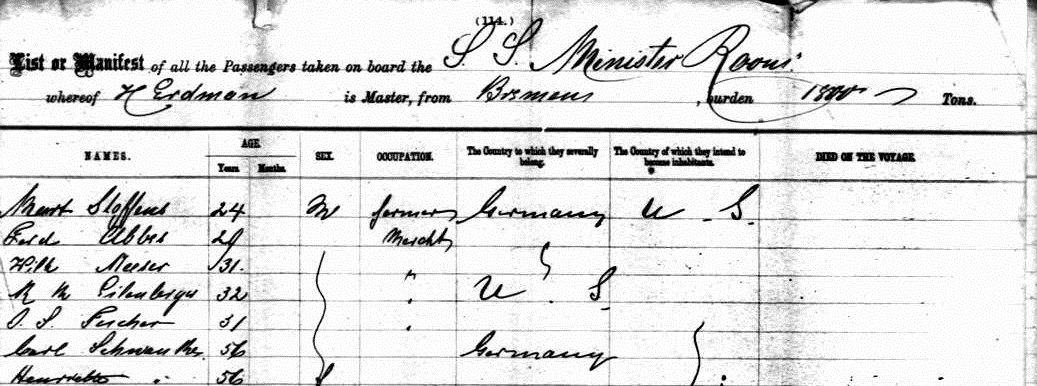 (114.)
List or Manifest of all the Passengers taken on board the S. S. Minister Roon
whereof H Erdman is Master, from Bremen , burden 1800 Tons.
NAMES. AGE. Years Months. SEX. OCCUPATION. The Country to which they severally belong. The Country of which they intend to become inhabitants. DIED ON THE VOYAGE.
Steffens 24 M farmer Germany U. S.
Ferd Abbes 29 Mercht
Wilh Meeser 31. "
32 " U. S.
Fischer 31 "
Carl 56 Germany
Henriette " 56